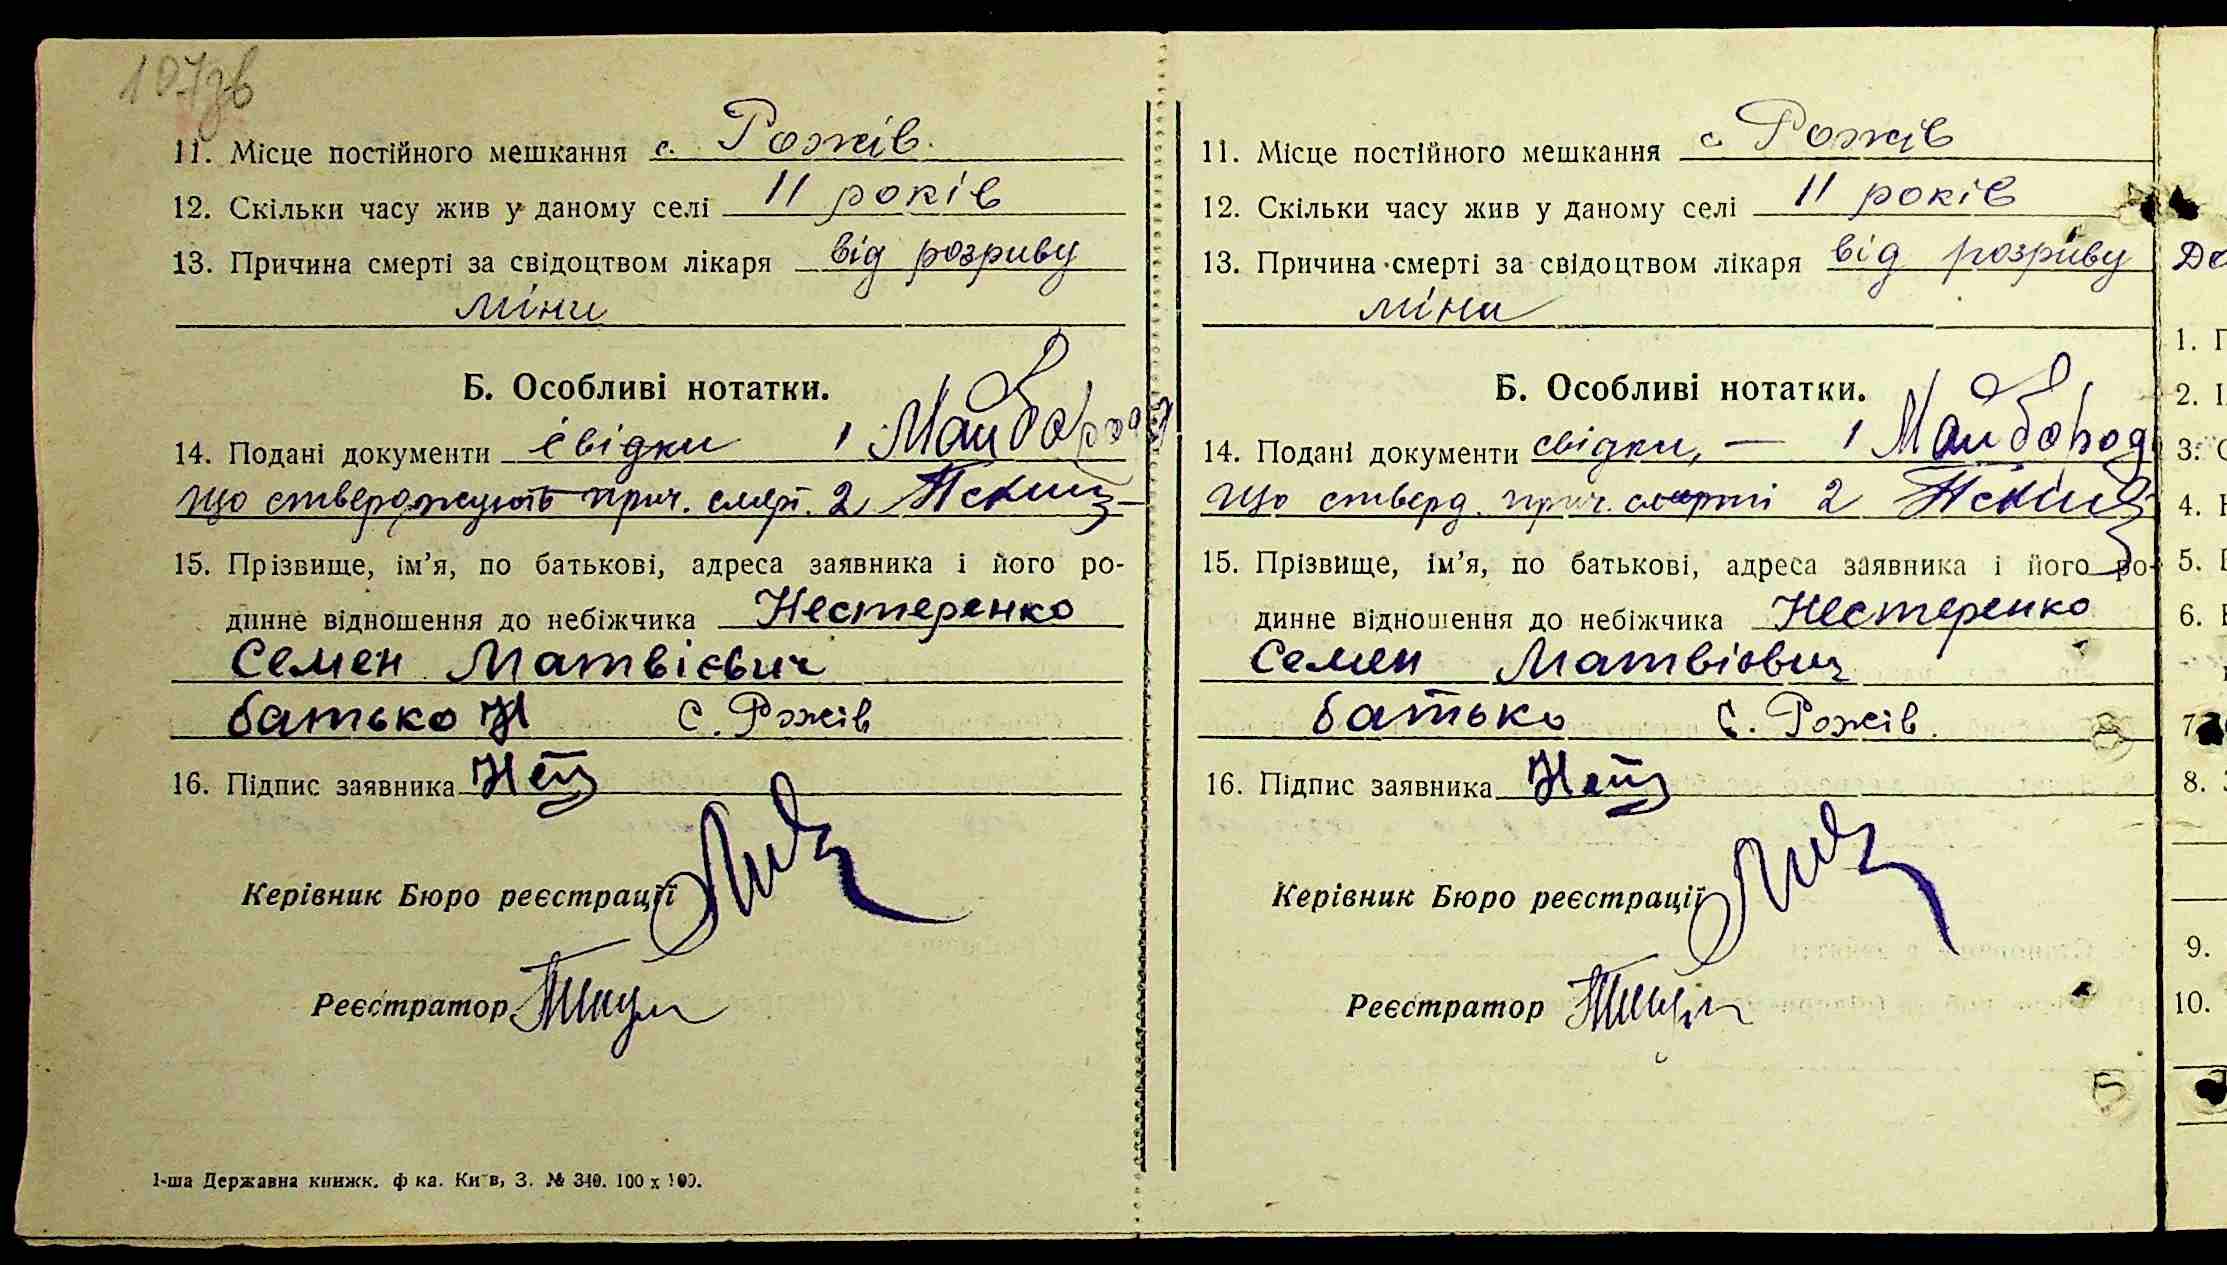 107зв
11. Місце постійного мешкання с. Рожів.
12. Скільки часу жив у даному селі 11 років
13. Причина смерті за свідоцтвом лікаря від розриву
міни
Б. Особливі нотатки.
14. Подані документи свідки 1 Майборода
що стверджують прич. смерт. 2
15. Прізвище, ім'я, по батькові, адреса заявника і його ро-
динне відношення до небіжчика Нестеренко
Семен Матвієвич
батько с. Рожів
16. Підпис заявника
Керівник Бюро реєстрації
Реєстратор
1-ша Державна книжк. ф ка. Київ, З. № 340. 100 х 100.
11. Місце постійного мешкання с Рожів
12. Скільки часу жив у даному селі 11 років
13. Причина смерті за свідоцтвом лікаря від розриву
міни
Б. Особливі нотатки.
14. Подані документи свідки, — 1 Майбород
що стверд. прич. смерті 2
15. Прізвище, ім'я, по батькові, адреса заявника і його ро-
динне відношення до небіжчика Нестеренко
Семен Матвієвич
батько с. Рожів.
16. Підпис заявника
Керівник Бюро реєстрації
Реєстратор
До
1.
2.
3.
4.
5.
6.
7.
8.
9.
10.